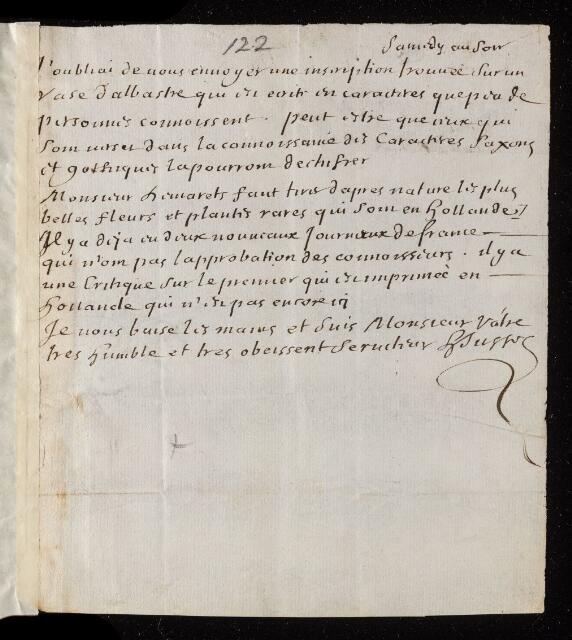 122
Samedy au Soir
J'oubliai de vous envoyer une inscription trouvée sur un
vase d'albastre qui est ecrit en caracteres que peu de
personnes connoissent. peut estre que ceux qui
sont versez dans la connoissance des Caracteres Saxons
et gothiques la pourront dechifrer
Monsieur Hemarets faut tirer d'apres nature les plus
belles fleurs et plantes rares qui sont en hollande
Il y a deja eu deux nouveaux Journaux de france
qui n'ont pas l'approbation des connoisseurs. il y a
une Critique sur le premier qui est imprimée en
Hollande qui n'est pas encore icy
Je vous baise les mains et suis Monsieur Vatre
tres humble et tres obeissent Serviteur HJustel